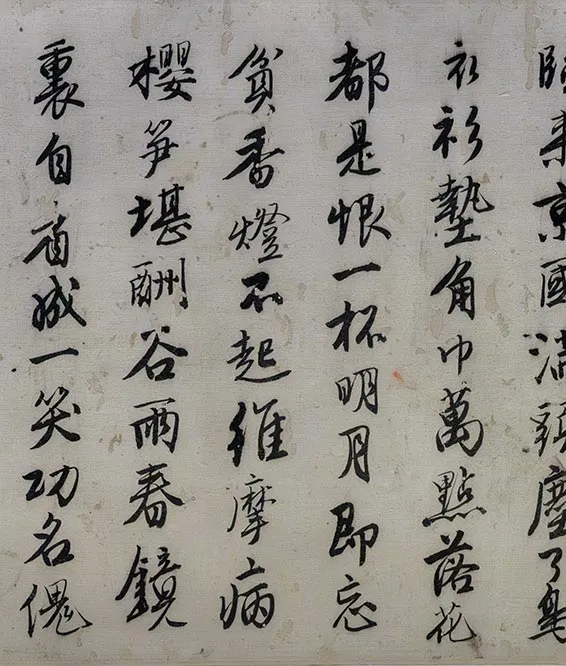 來京國滿頭塵了
衣衫墊角巾萬點落花
都是恨一杯明月即忘
貧香燈不起維摩病
櫻笋堪酬谷雨春鏡
裏自看成一笑功名傀